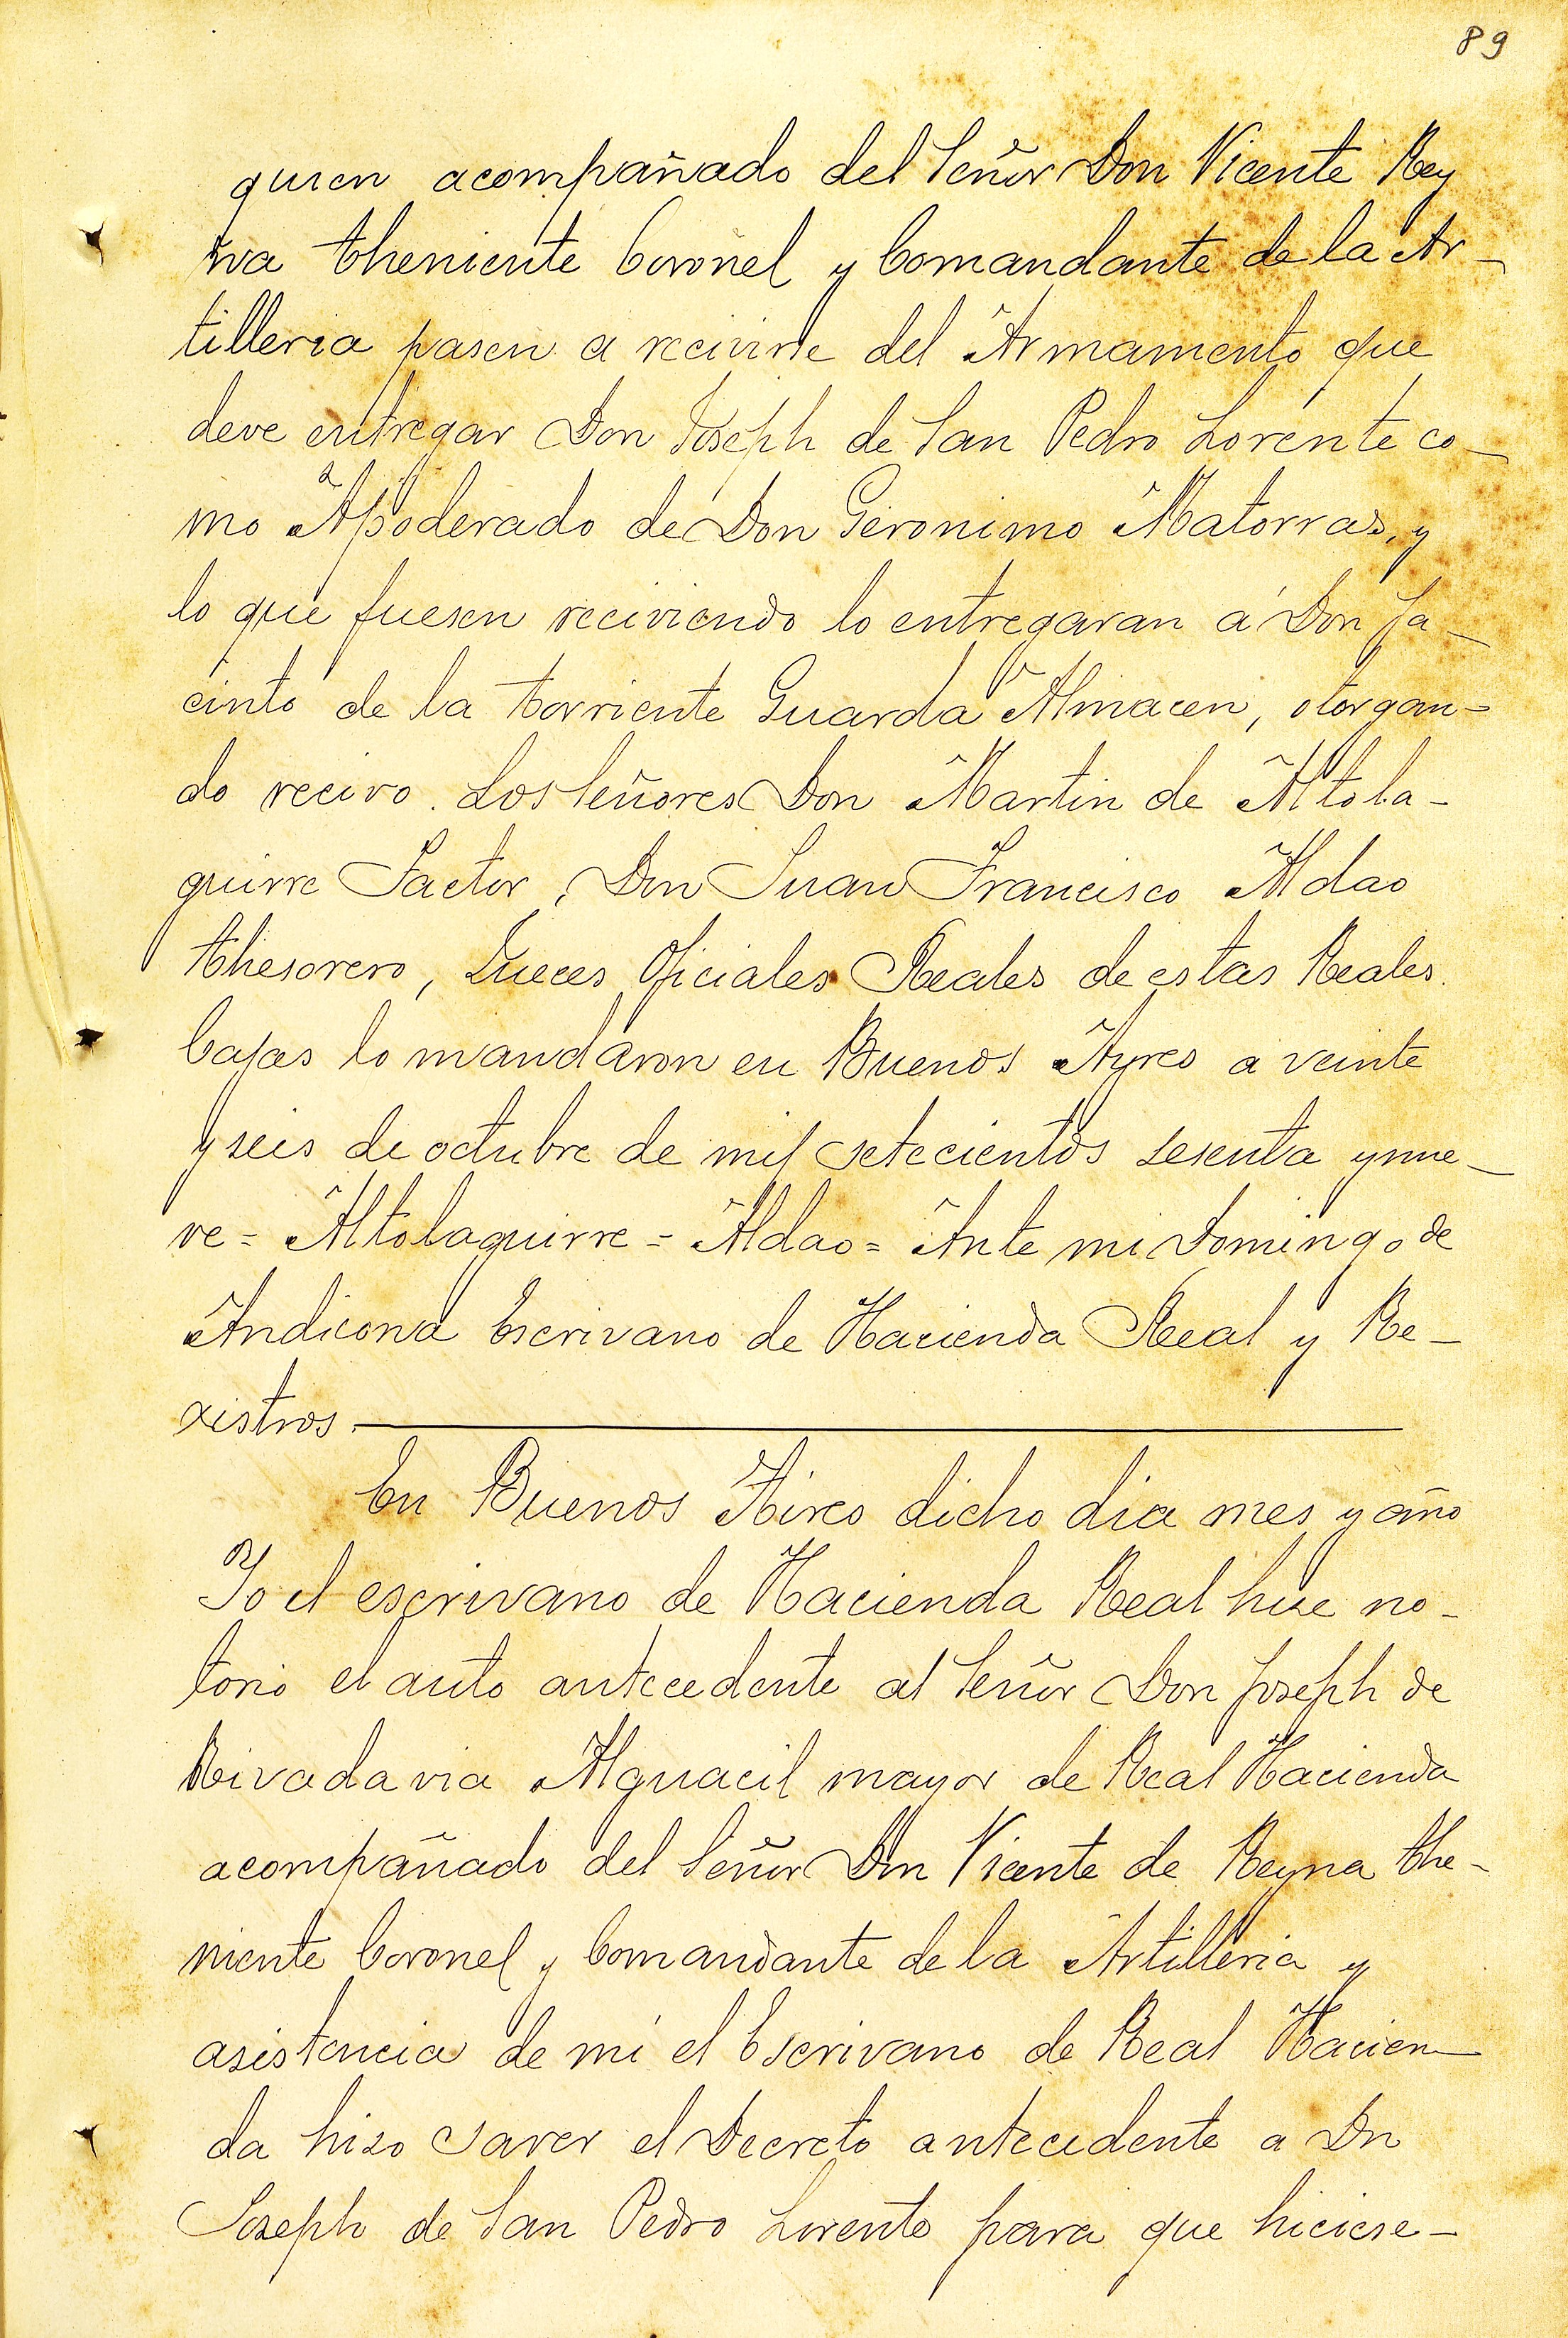 89
quien acompañado del Señor Don Vicente Rey
na theniente Coronel y Comandante de la Ar-
tilleria pasen a recivirse del Armamento que
deve entregar Don Joseph de San Pedro Lorente co-
mo Apoderado de Don Geronimo Matorras, y
lo que fuesen reciviendo lo entregaran a Don Ja-
cinto de la torriente Guarda Almacen, otorgan-
do recivo. Los Señores Don Martin de Altola-
guirre Factor, Don Juan Francisco Aldao
thesorero, Jueces Oficiales Reales de estas Reales
Cajas lo mandaron en Buenos Ayres a veinte
y seis de octubre de mil setecientos sesenta y nue-
ve = Altolaguirre = Aldao = Ante mi Domingo de
Andicona Escrivano de Hacienda Real y Re-
xistros.
En Buenos Aires dicho dia mes y año
Yo el escrivano de Hacienda Real hise no-
torio el auto antecedente al Señor Don Joseph de
Rivadavia Alguacil mayor de Real Hacienda
acompañado del Señor Don Vicente de Reyna the-
niente Coronel y Comandante de la Artilleria y
asistencia de mi el Escrivano de Real Hacien-
da hiso saver el Decreto antecedente a Dn
Joseph de San Pedro Lorente para que hiciese-